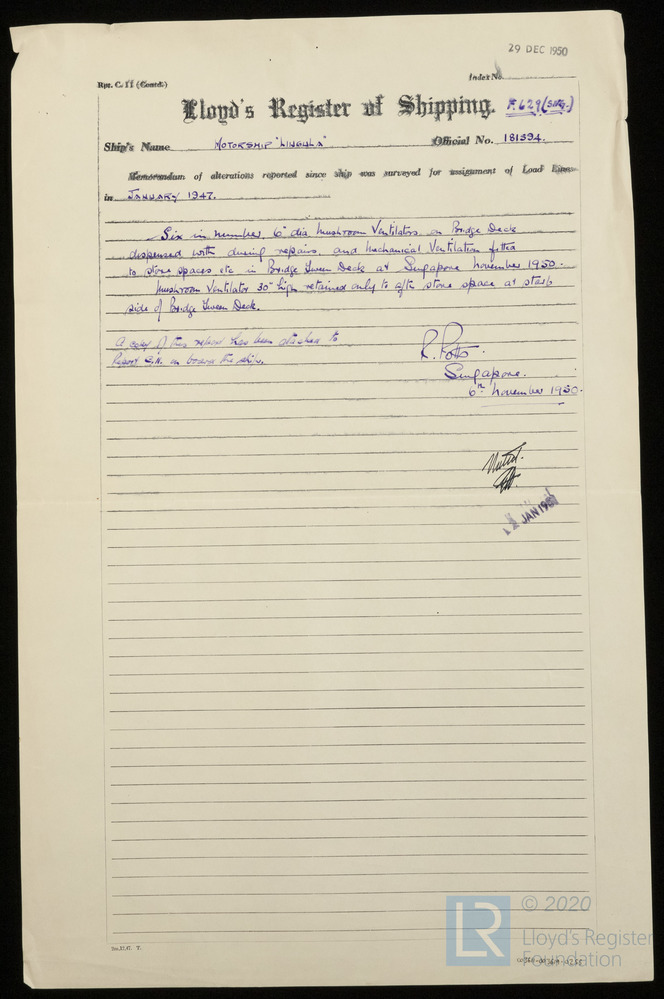 29 DEC 1950
Rpt. C. 11 (Contd.)
Index No.
Lloyd's Register of Shipping. F.629 (Sing.)
Ship's Name MOTORSHIP "LINGULA" Official No. 181594.
Memorandum of alterations reported since ship was surveyed for assignment of Load Lines
in JANUARY 1947.
Six in number, 6" dia mushroom Ventilators on Bridge Deck
dispensed with during repairs, and mechanical Ventilation fitted
to store spaces etc in Bridge Tween Deck at Singapore November 1950.
Mushroom Ventilator 30" high retained only to aft store space at starb
side of Bridge Tween Deck.
A copy of this report has been attached to
Report on board the ship.
R. Potts.
Singapore.
6th November 1950.
Noted.
JAN 1951
T.
© 2020
LR
Lloyd's Register
Foundation